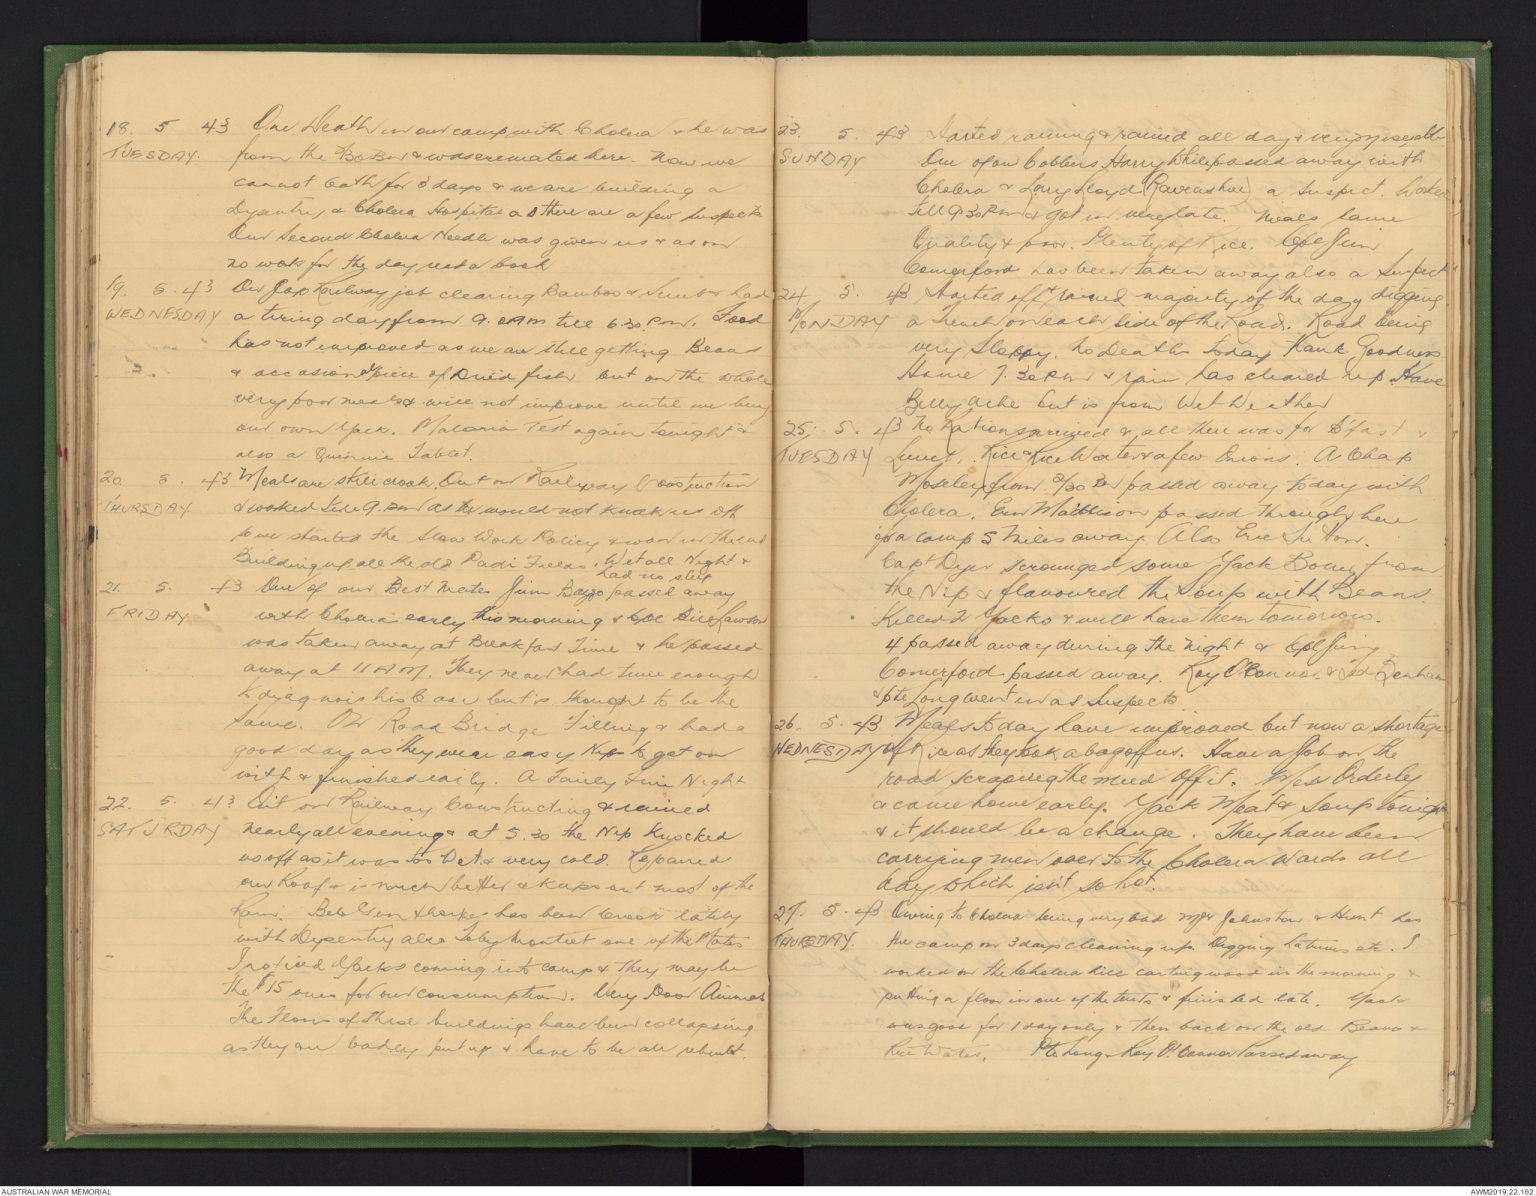 18. 5 43 One Death in our camp with Cholera & he was
TUESDAY. from the 2/30 Bn & was cremated here. Now we
cannot bath for 3 days & we are building a
Dysentry & Cholera Hospital as there are a few suspects
Our Second Cholera Needle was given us & as on
no work for the day read a book
19. 5. 43 On Jap Railway job clearing Bamboo & Timber had
WEDNESDAY a tiring day from 9. AM till 6.30 P.m. Food
has not improved as we are still getting Beans
& occasional piece of Dried fish but on the whole
very poor meals & will not improve until we buy
our own Yack. Malaria Test again tonight &
also a Quinine Tablet.
20. 5. 43 Meals are still crook. Out on Railway Construction
THURSDAY & worked till 9. pm as he would not knock us off
so we started the Slow Work Policy & was in the mud
Building up all the old Padi Fields. Wet all Night &
had no sleep
21. 5. 43 One of our Best Mates Jim Bazzo passed away
FRIDAY with Cholera early this morning & Cpl Bill Lawson
was taken away at Breakfast Time & he passed
away at 11 AM. They never had time enough
to diagnois his Case but is thought to be the
same. On Road Bridge Filling & had a
good day as they were easy Nip to get on
with & finished early. A Fairly Fine Night
22. 5. 43 Out on Railway Constructing & rained
SATURDAY nearly all evening & at 5.30 the Nip Knocked
us off as it was too Wet & very cold. Repaired
our Roof & is much better & keeps out most of the
Rain. Bob has been crook lately
with Dysentry also Toby one of the Mates
I noticed Yacks coming into camp & they may be
the $15 ones for our consumption. Very Poor Animals
The Floors of these buildings have been collapsing
as they are badly put up & have to be all rebuilt.
23. 5. 43 Started raining & rained all day & very miserable
SUNDAY One of our Cobbers Harry While passed away with
Cholera & Larry Lloyd (Ravenshoe) a suspect. Worked
till 9.30 Pm & got in very late. Meals same
Quality & poor. Plenty of Rice. Cpl Jim
Comerford has been taken away also a Suspect
24. 5. 43 Started off & rained majority of the day digging
MONDAY a Trench on each side of the Road. Road being
very Sloppy. No Deaths today Thank Goodness
Home 7.30 Pm & rain has cleared up. Have
Belly Ache but is from Wet Weather
25. 5. 43 No Rations arrived & all there was for B'fast &
TUESDAY Lunch, Rice & Rice Water & a few Onions. A Chap
Moseley from 2/30 Bn passed away today with
Cholera. Ern Mattison passed through here
for a camp 5 Miles away. Also Eric Sutton.
Capt Dyer scrounged some Yack Bones from
the Nip & flavoured the Soup with Beans.
Killed 2 Yacks & will have them tomorrow.
4 passed away during the night & Cpl Jim
Comerford passed away. Roy O'Connor & Ted Denham
& pte Long went in as Suspects
26. 5. 43 Meals today have improved but now a shortage
WEDNESDAY of Rice as they took a bag off us. Have a Job on the
road scraping the mud off it. Mess Orderly
& came home early. Yack Meat & Soup tonight
& it should be a change. They have been
carrying men over to the Cholera Wards all
day which isn't so hot.
27. 5. 43 Owing to Cholera being very bad Mjr Johnston & Hunt has
THURSDAY. the camp on 3 days cleaning up. Digging Latrines etc. I
worked on the Cholera Hill carting wood in the morning &
putting a floor in one of the tents & finished late. Yack
was good for 1 day only & then back on the old Beans &
Rice Water. Pte Long & Roy O'Connor Passed away
AUSTRALIAN WAR MEMORIAL
AWM2019.22.162